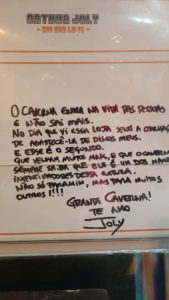 ARTHUR JOLY
- UM DIA LO FI -
O CAVERNA ENTRA NA VIDA DAS PESSOAS
E NÃO SAI MAIS.
NO DIA QUE VI ESSA LOJA SENTI A
DE ABASTECÊ-LA DE DISCOS MEUS.
E ESSE É O SEGUNDO.
QUE VENHA MUITOS MAIS, E QUE O
SEMPRE SAIBA QUE ELE É UM DOS
INCENTIVADORES DESSA CULTURA.
NÃO SÓ PARA MIM, MAS PARA MUITOS
OUTROS!!!!
GRANDE CAVERNA!
TE AMO
JOLY